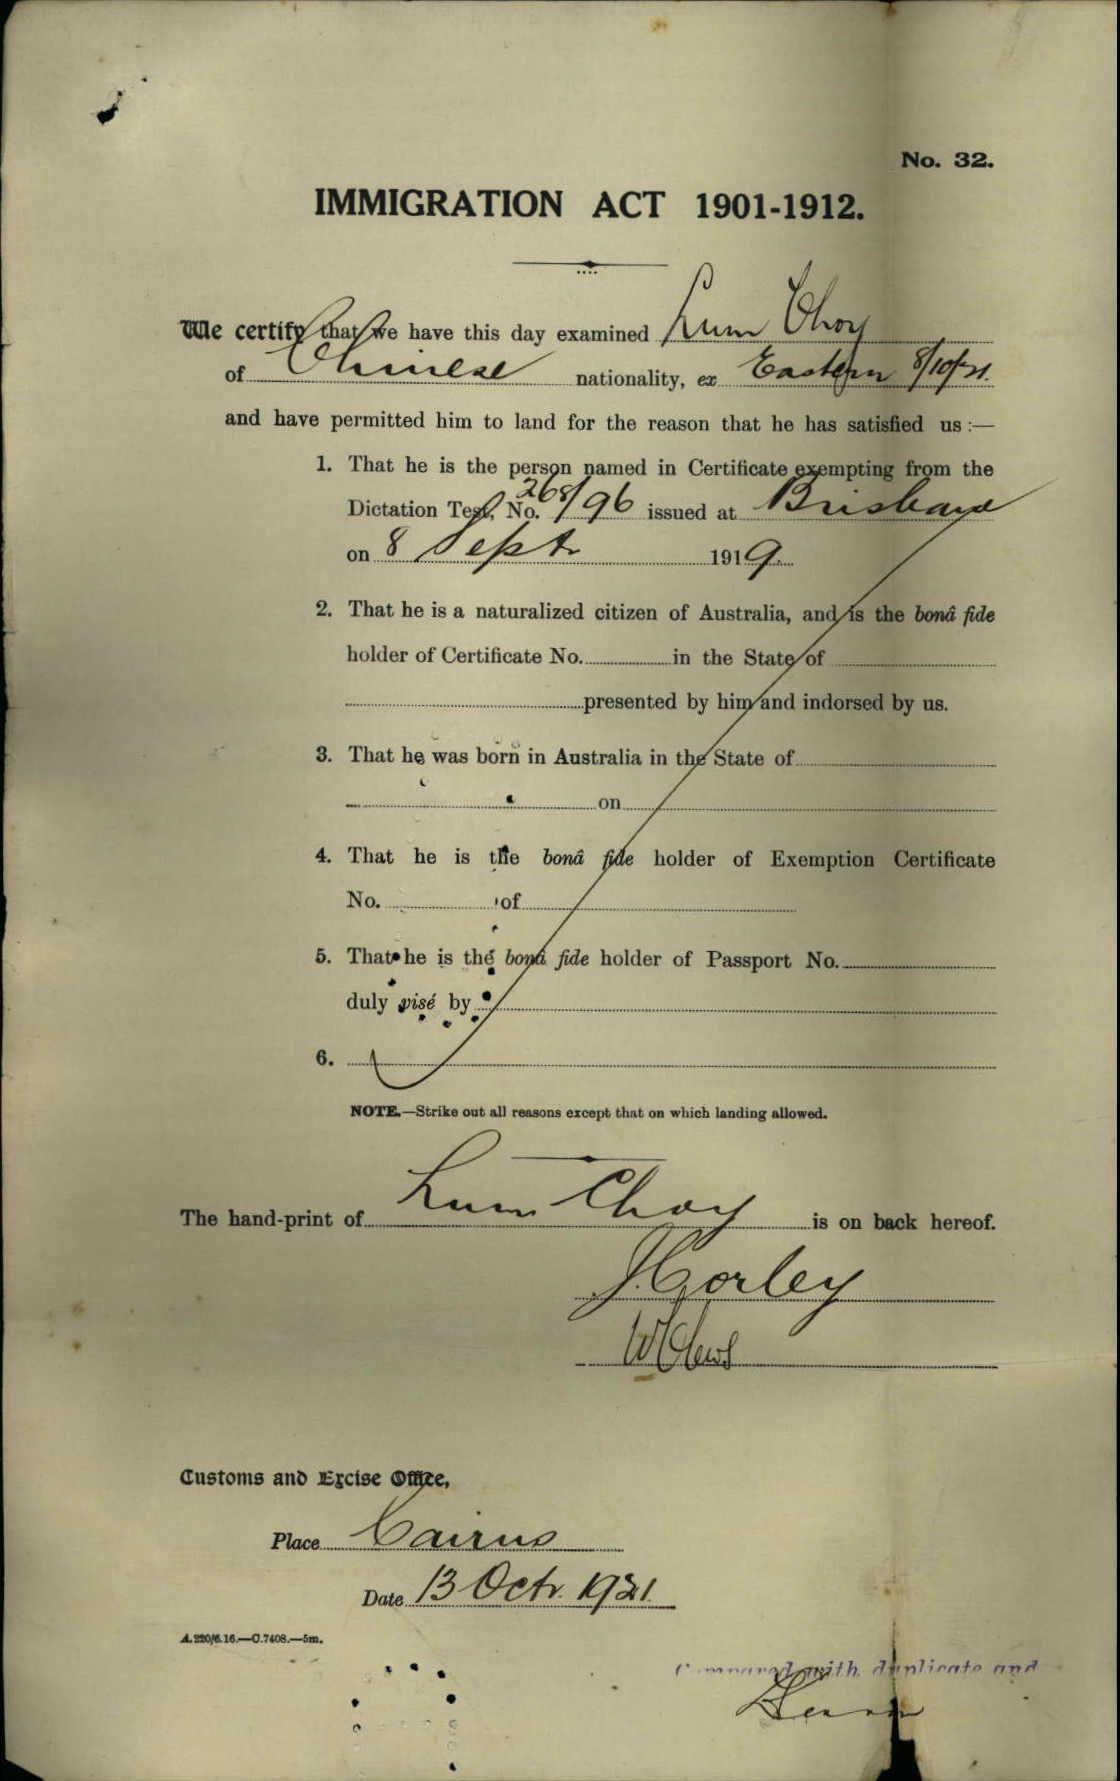 No. 32.
IMMIGRATION ACT 1901-1912.
We certify that we have this day examined Lum Choy
of Chinese nationality, ex Eastern 8/10/21.
and have permitted him to land for the reason that he has satisfied us :—
1. That he is the person named in Certificate exempting from the
Dictation Test, No. 268/96 issued at Brisbane
on 8 Sept. 1919.
2. That he is a naturalized citizen of Australia, and is the bonâ fide
holder of Certificate No. in the State of
presented by him and indorsed by us.
3. That he was born in Australia in the State of
on
4. That he is the bonâ fide holder of Exemption Certificate
No. of
5. That he is the bonâ fide holder of Passport No.
duly visé by
6.
NOTE.—Strike out all reasons except that on which landing allowed.
The hand-print of Lum Choy is on back hereof.
J Corley
Customs and Excise Office,
Place Cairns
Date 13 Octr. 1921.
A.220/6.16.—C.7408.—5m.
Compared with duplicate and